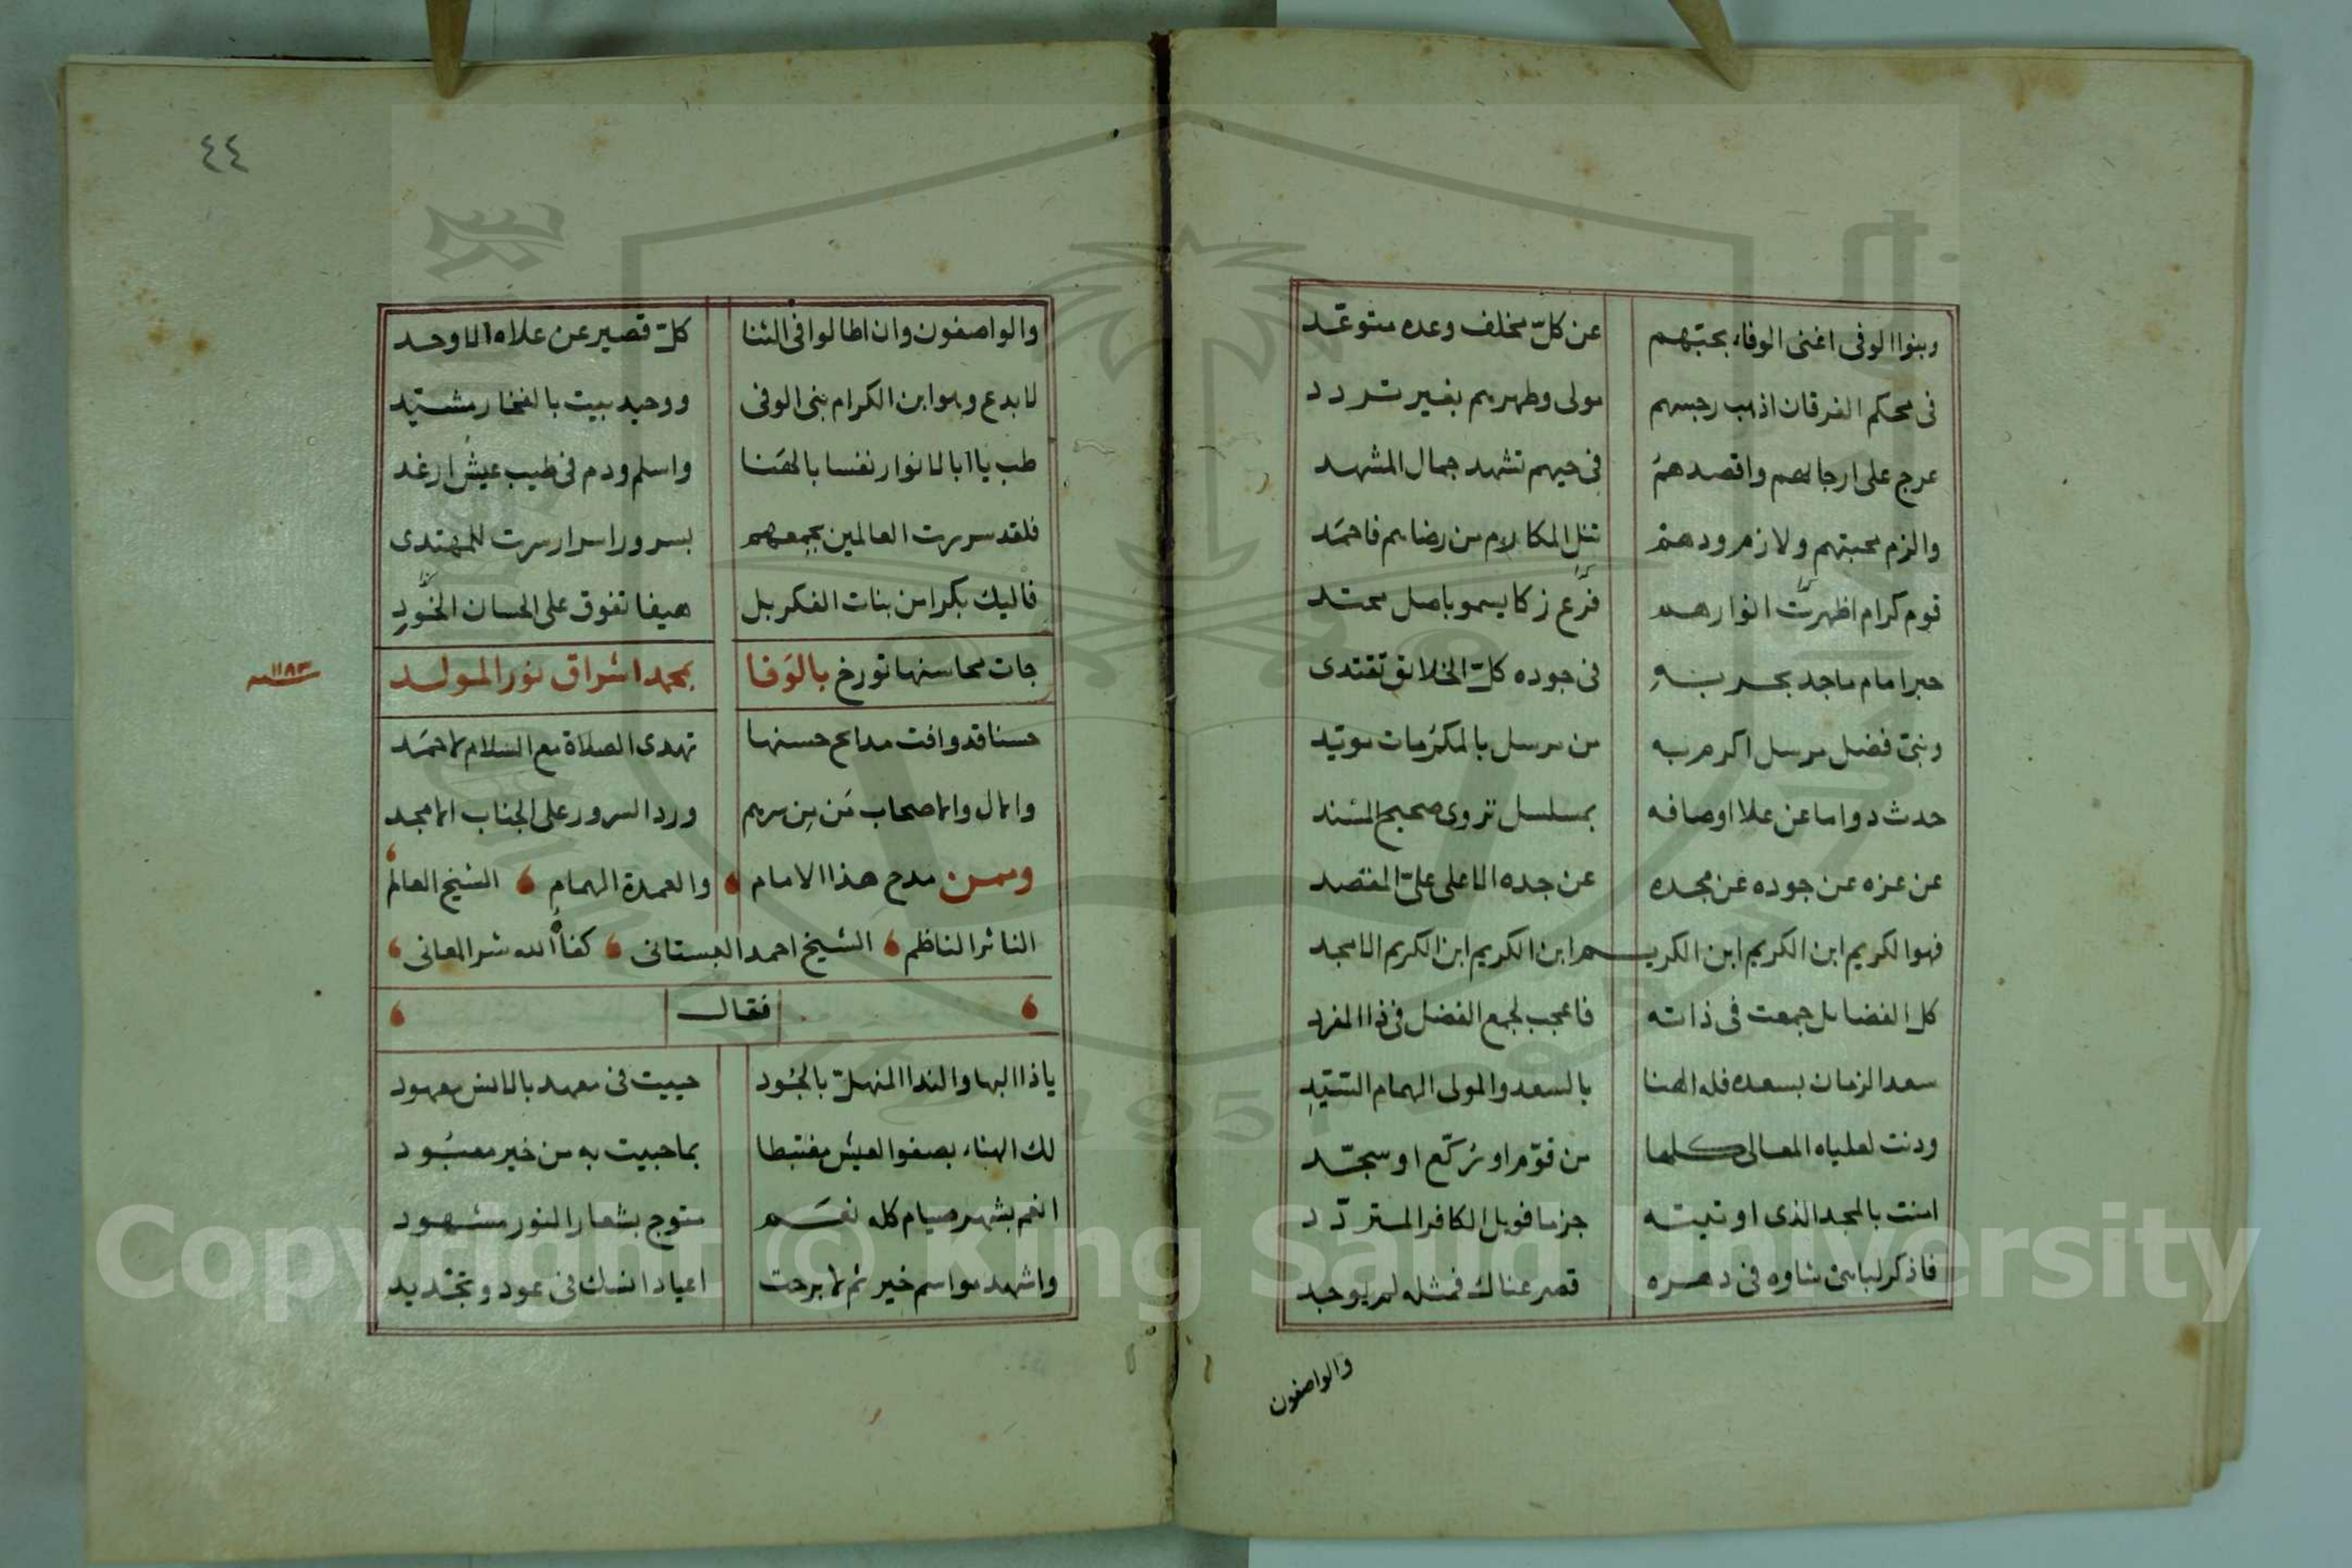 وبنوا الوفى اغنى الوفاء بحبّهم عن كلّ مخلف وعده متوعّد
فى محكم الفرقان اذهب رجسهم مولى وطهرهم بغير تردد
عرج على ارجائهم واقصدهم فى حيهم تشهد جمال المشهد
والزم محبتهم ولازم ودهم تنل المكارم من رضاهم فاحمد
قوم كرام اظهرت انوارهم فرع زكا يسمو باصل محتد
حبر امام ماجد بحر به فى جوده كلّ الخلائق تقتدى
وبنىّ فضل مرسل اكرم به من مرسل بالمكرمات مويّد
حدث دواما عن علا اوصافه بمسلسل تروى صحيح المسند
عن عزه عن جوده عن مجده عن جده الاعلى علىّ المقصد
فهو الكريم ابن الكريم ابن الكريـم ابن الكريم ابن الكريم الامجد
كل الفضايل جمعت فى ذاته فاعجب لجمع الفضل فى ذا المفرد
سعد الزمان بسعده فله الهنا بالسعد والمولى الهمام السّيّد
ودنت لعلياه المعالى كلها من قوّم او ركّع او سجّد
امنت بالمجد الذى اوتيته جزما فويل الكافر المتردّد
فاذكر لباسى شاوه فى دهره قصر عناك فمثله لم يوجد
والواصفون
٤٤
والواصفون وان اطالوا فى الثنا كلّ قصير عن علاه الاوحد
لا بدع وهو ابن الكرام بنى الوفى ووحيد بيت بالفخار مشيّد
طب يا ابا الانوار نفسا بالهنا واسلم ودم فى طيب عيش ارغد
فلقد سررت العالمين بجمعهم بسرور اسرار سرت للمهتدى
فاليك بكرا من بنات الفكر بل هيفا تفوق على الحسان الخرّد
جات محاسنها تورخ بالوفا بمحمد اشراق نور المولد
١١٨٣ سنة
حسنا قد وافت مدائح حسنها تهدى الصلاة مع السلام لاحمد
والال والاصحاب من من سرهم ورد السرور على الجناب الامجد
وممن مدح هذا الامام والعمدة الهمام الشيخ العالم
الناثر الناظم الشيخ احمد البستانى كفاه الله شر المعانى
فقال
يا ذا البها والندا المنهلّ بالجود حييت فى معهد بالانس معهود
لك الهناء بصفوا العيش مغتبطا بما حبيت به من خير معبود
انعم بشهر صيام كله نعم متوج بشعار النور مشهود
واشهد مواسم خير ثم لا برحت اعياد انسك فى عود وتجديد
Copyright © King Saud University
1957